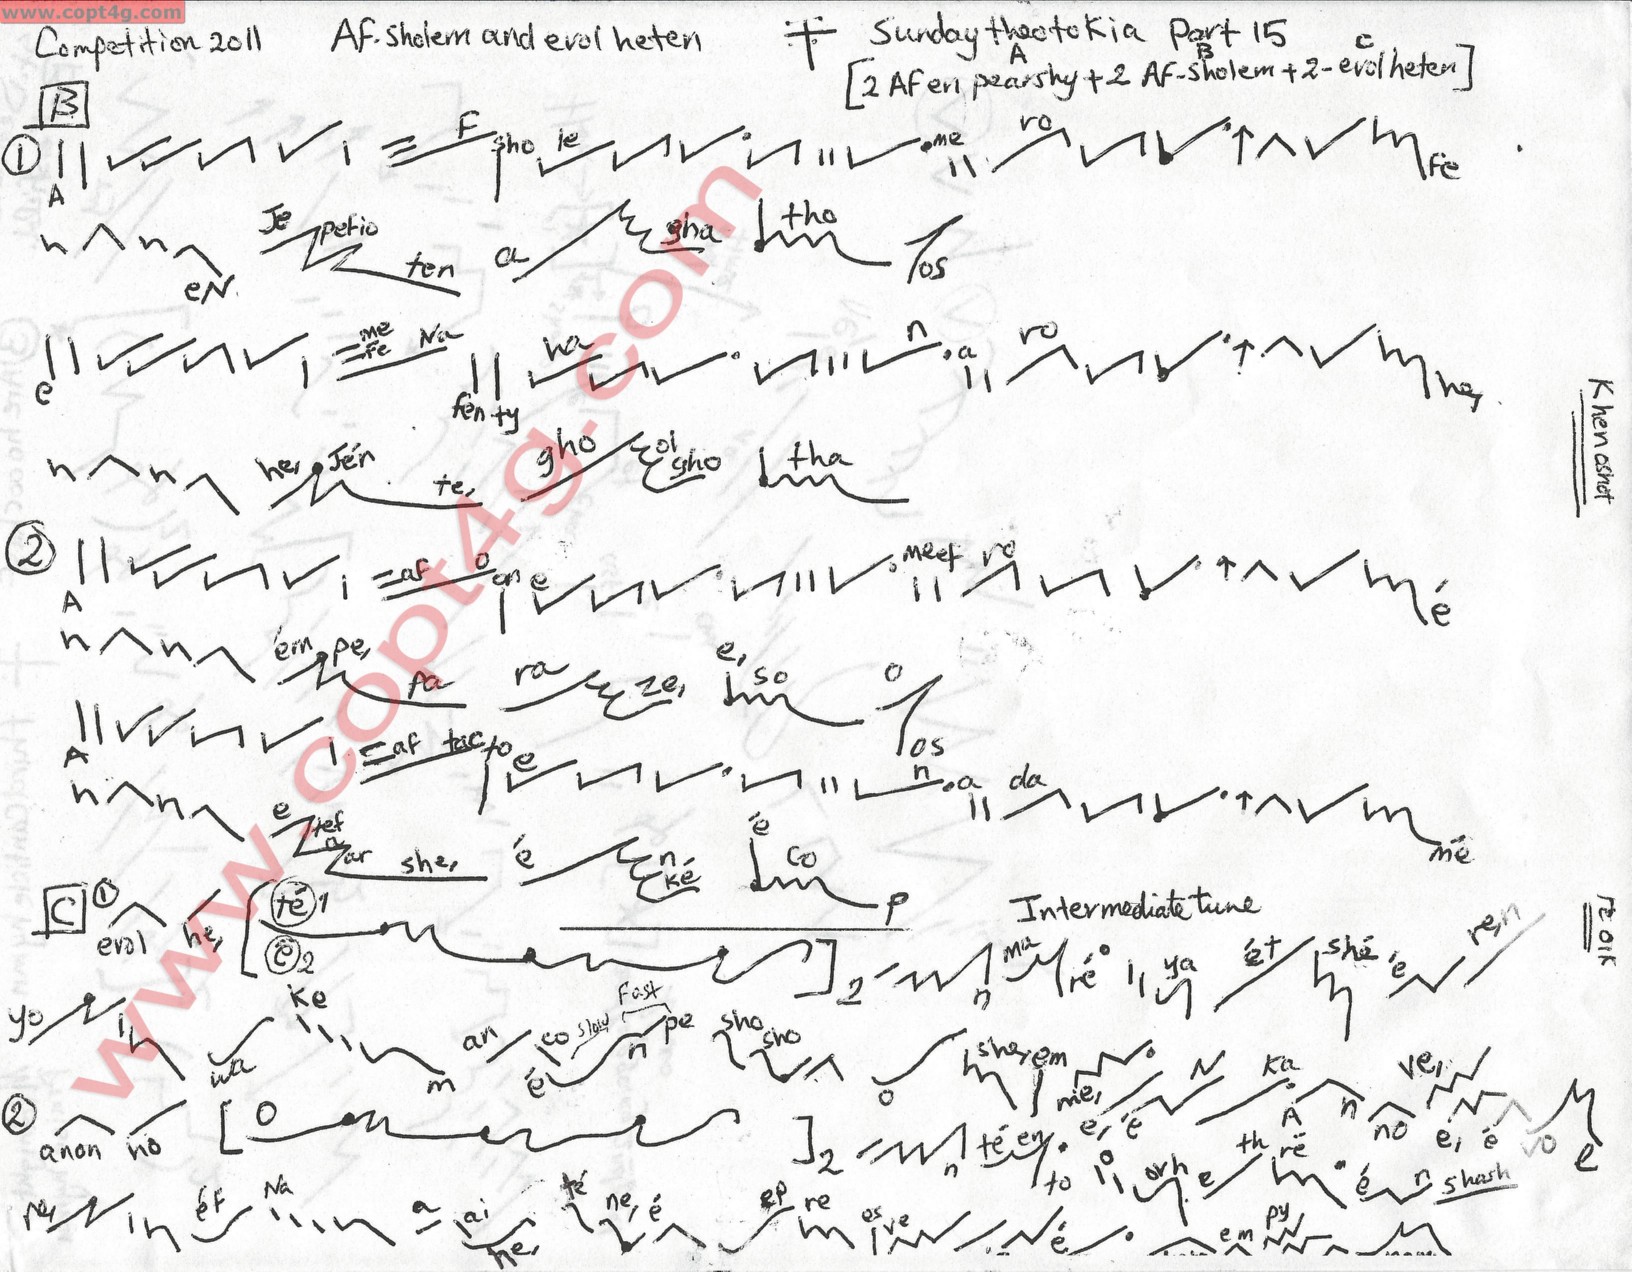 www.copt4g.com
Competition 2011 Af-Sholem and evol heten Sunday theotokia Part 15
A B C
[2 Af en pearshy + 2 Af-Sholem + 2-evol heten]
B
1 A F sho le me ro fe
eN Je petio ten a gha tho os
e me fe Na fen ty ha n a ro he,
he, Jén te, gho oi gho tha
Khen oshot
2 A af o on e meef ro é
ém pe, pa ra ze, e, so o os
A af tac to e n a da mé
e tef a ar she, é n ké é co p
C 1 evol he, [té 1 é 2] 2 Intermediate tune
n ma ré ya ét shé é re,n
re oik
yo wa ke m an co é slow Fast n pe sho sho o she, em me,
2 anon no [O] 2 n té en to e, é N Ka A n no ve, e, é vo e
orh e th ré é n shash
re, éf Na a ai he, té ne, é ep re es ve é em py
www.copt4g.com